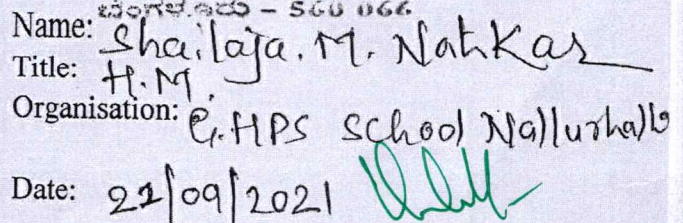 ಬೆಂಗಳೂರು - 560 066
Name: Shailaja. M. Natikar
Title: H.M.
Organisation: G.HPS School Nallurhalli
Date: 22/09/2021